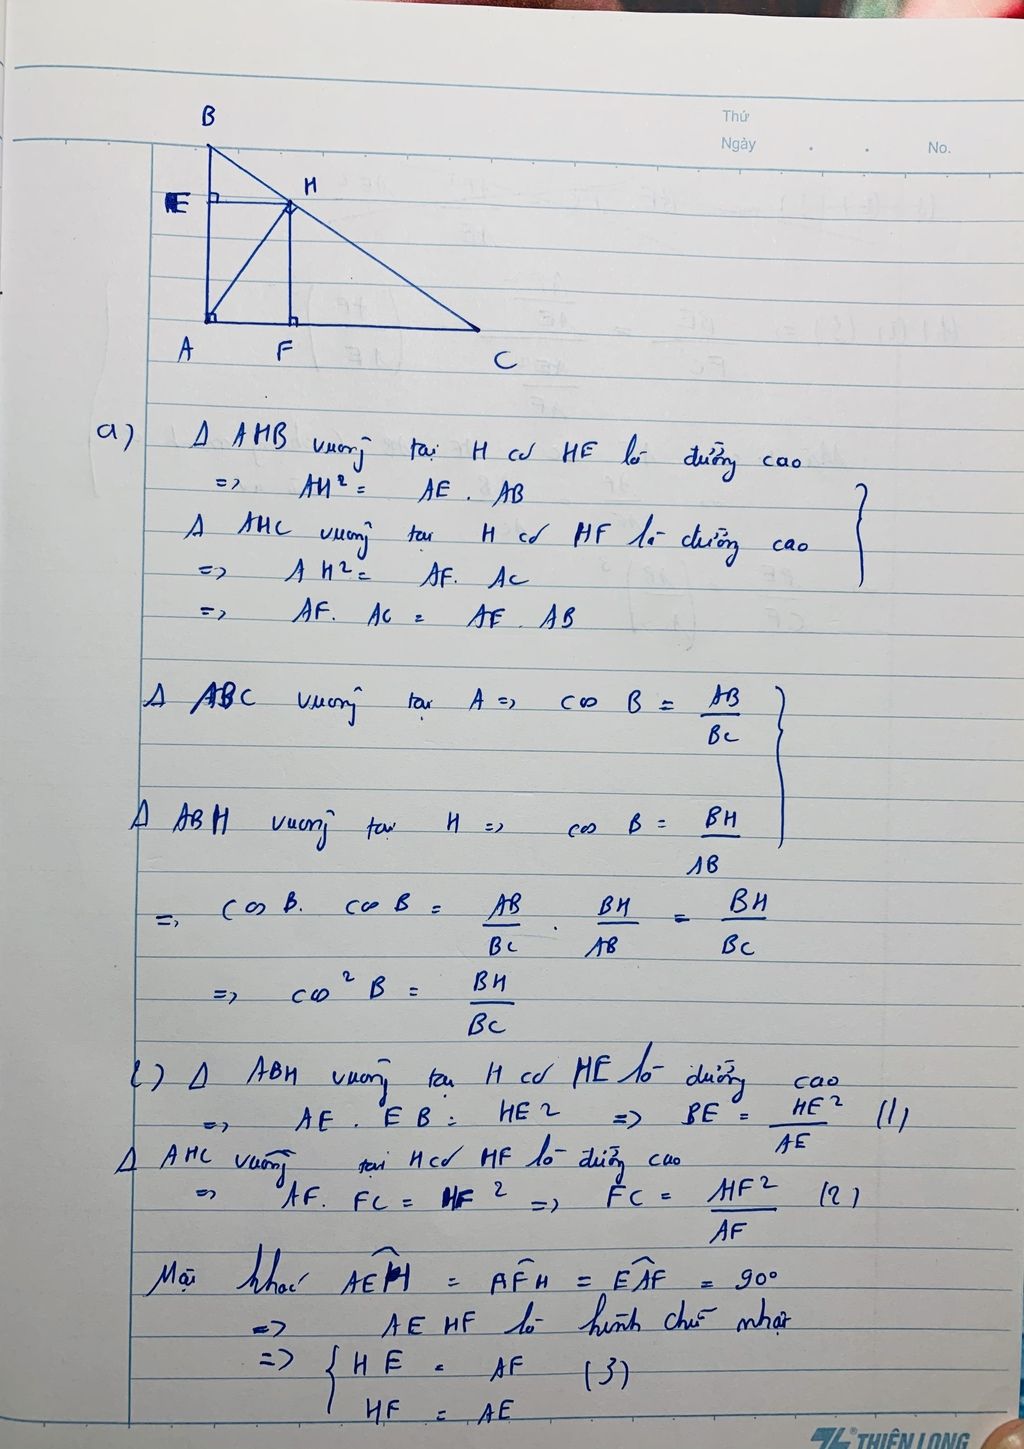 Thứ
Ngày . . No.
B
E H
A F C
a) Δ AHB vuông tại H có HE là đường cao
=> AH² = AE . AB
Δ AHC vuông tại H có HF là đường cao
=> AH² = AF. AC
=> AF. AC = AE . AB
Δ ABC vuông tại A => cos B = AB/BC
Δ ABH vuông tại H => cos B = BH/AB
=> cos B. cos B = AB/BC . BH/AB = BH/BC
=> cos² B = BH/BC
Δ ABH vuông tại H có HE là đường cao
=> AE . EB = HE² => BE = HE²/AE (1)
Δ AHC vuông tại H có HF là đường cao
=> AF. FC = HF² => FC = HF²/AF (2)
Mặt khác AEH = AFH = EAF = 90°
=> AEHF là hình chữ nhật
=> { HE = AF (3)
HF = AE
THIÊN LONG